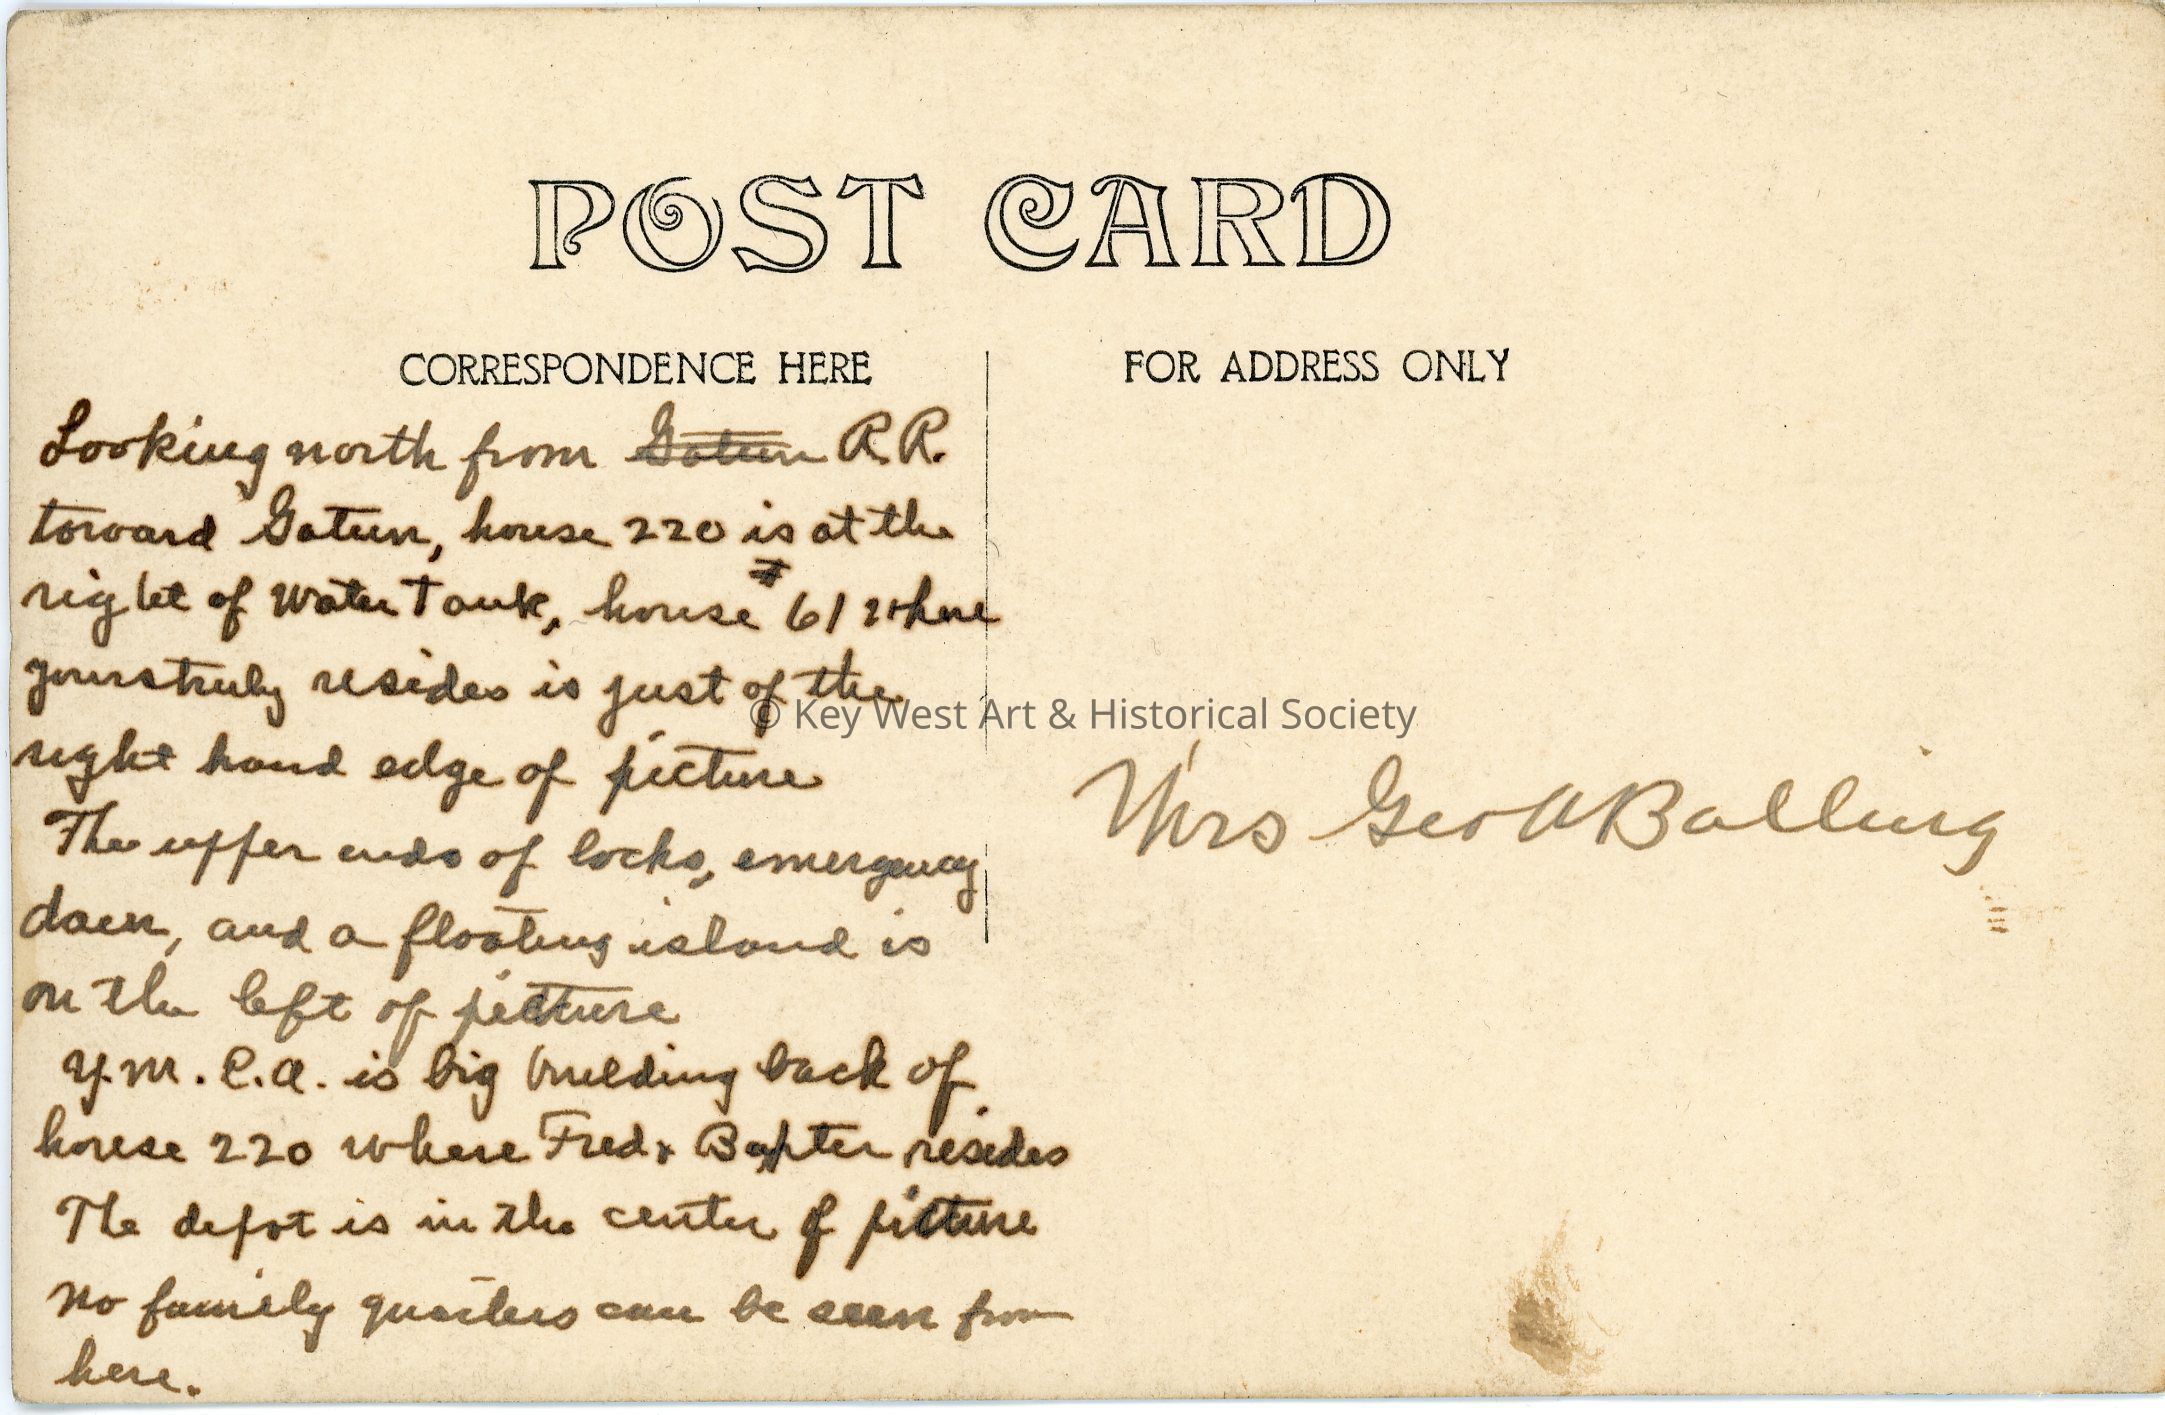 POST CARD
CORRESPONDENCE HERE
FOR ADDRESS ONLY
Looking north from Gatun R.R.
toward Gatun, house 220 is at the
right of Water Tank, house # 61 where
yourstruly resides is just of the
right hand edge of picture
The upper ends of locks, emergency
dam, and a floating island is
on the left of picture
Y.M.C.A. is big building back of
house 220 where Fred & Baxter resides
The depot is in the center of picture
No family quarters can be seen from
here.
Mrs Geo W Balling
© Key West Art & Historical Society